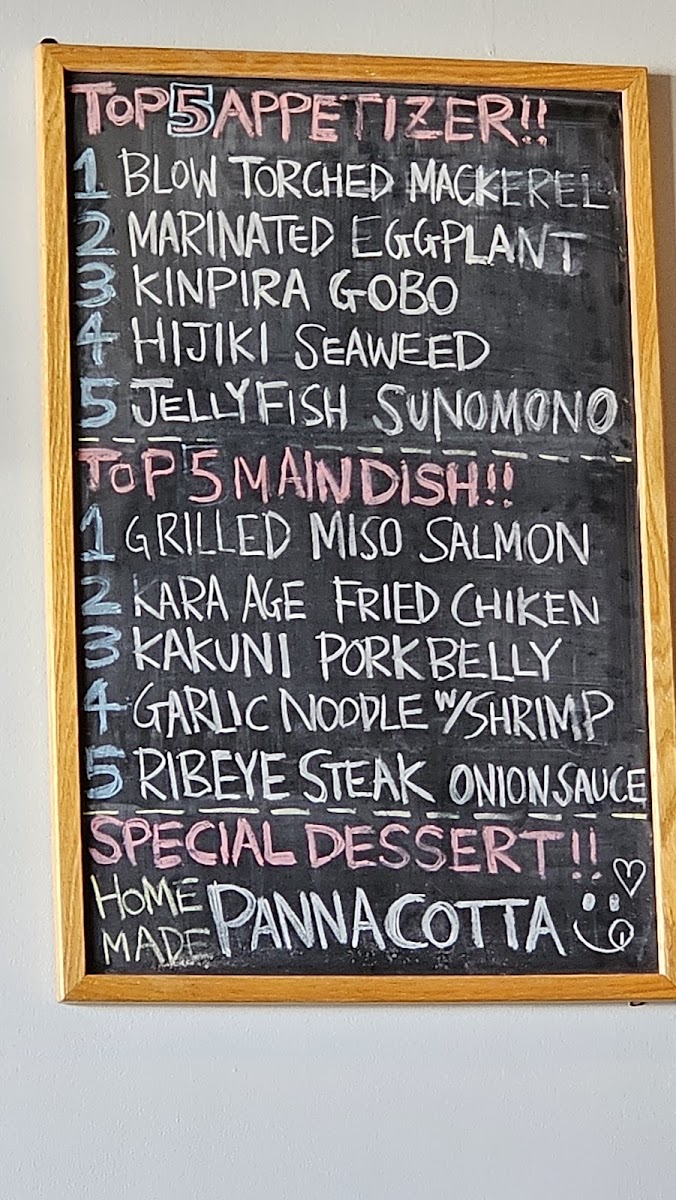 TOP 5 APPETIZER!!
1 BLOW TORCHED MACKEREL
2 MARINATED EGGPLANT
3 KINPIRA GOBO
4 HIJIKI SEAWEED
5 JELLYFISH SUNOMONO
TOP 5 MAIN DISH!!
1 GRILLED MISO SALMON
2 KARA AGE FRIED CHIKEN
3 KAKUNI PORK BELLY
4 GARLIC NOODLE W/SHRIMP
5 RIBEYE STEAK ONION SAUCE
SPECIAL DESSERT!!
HOME MADE PANNACOTTA